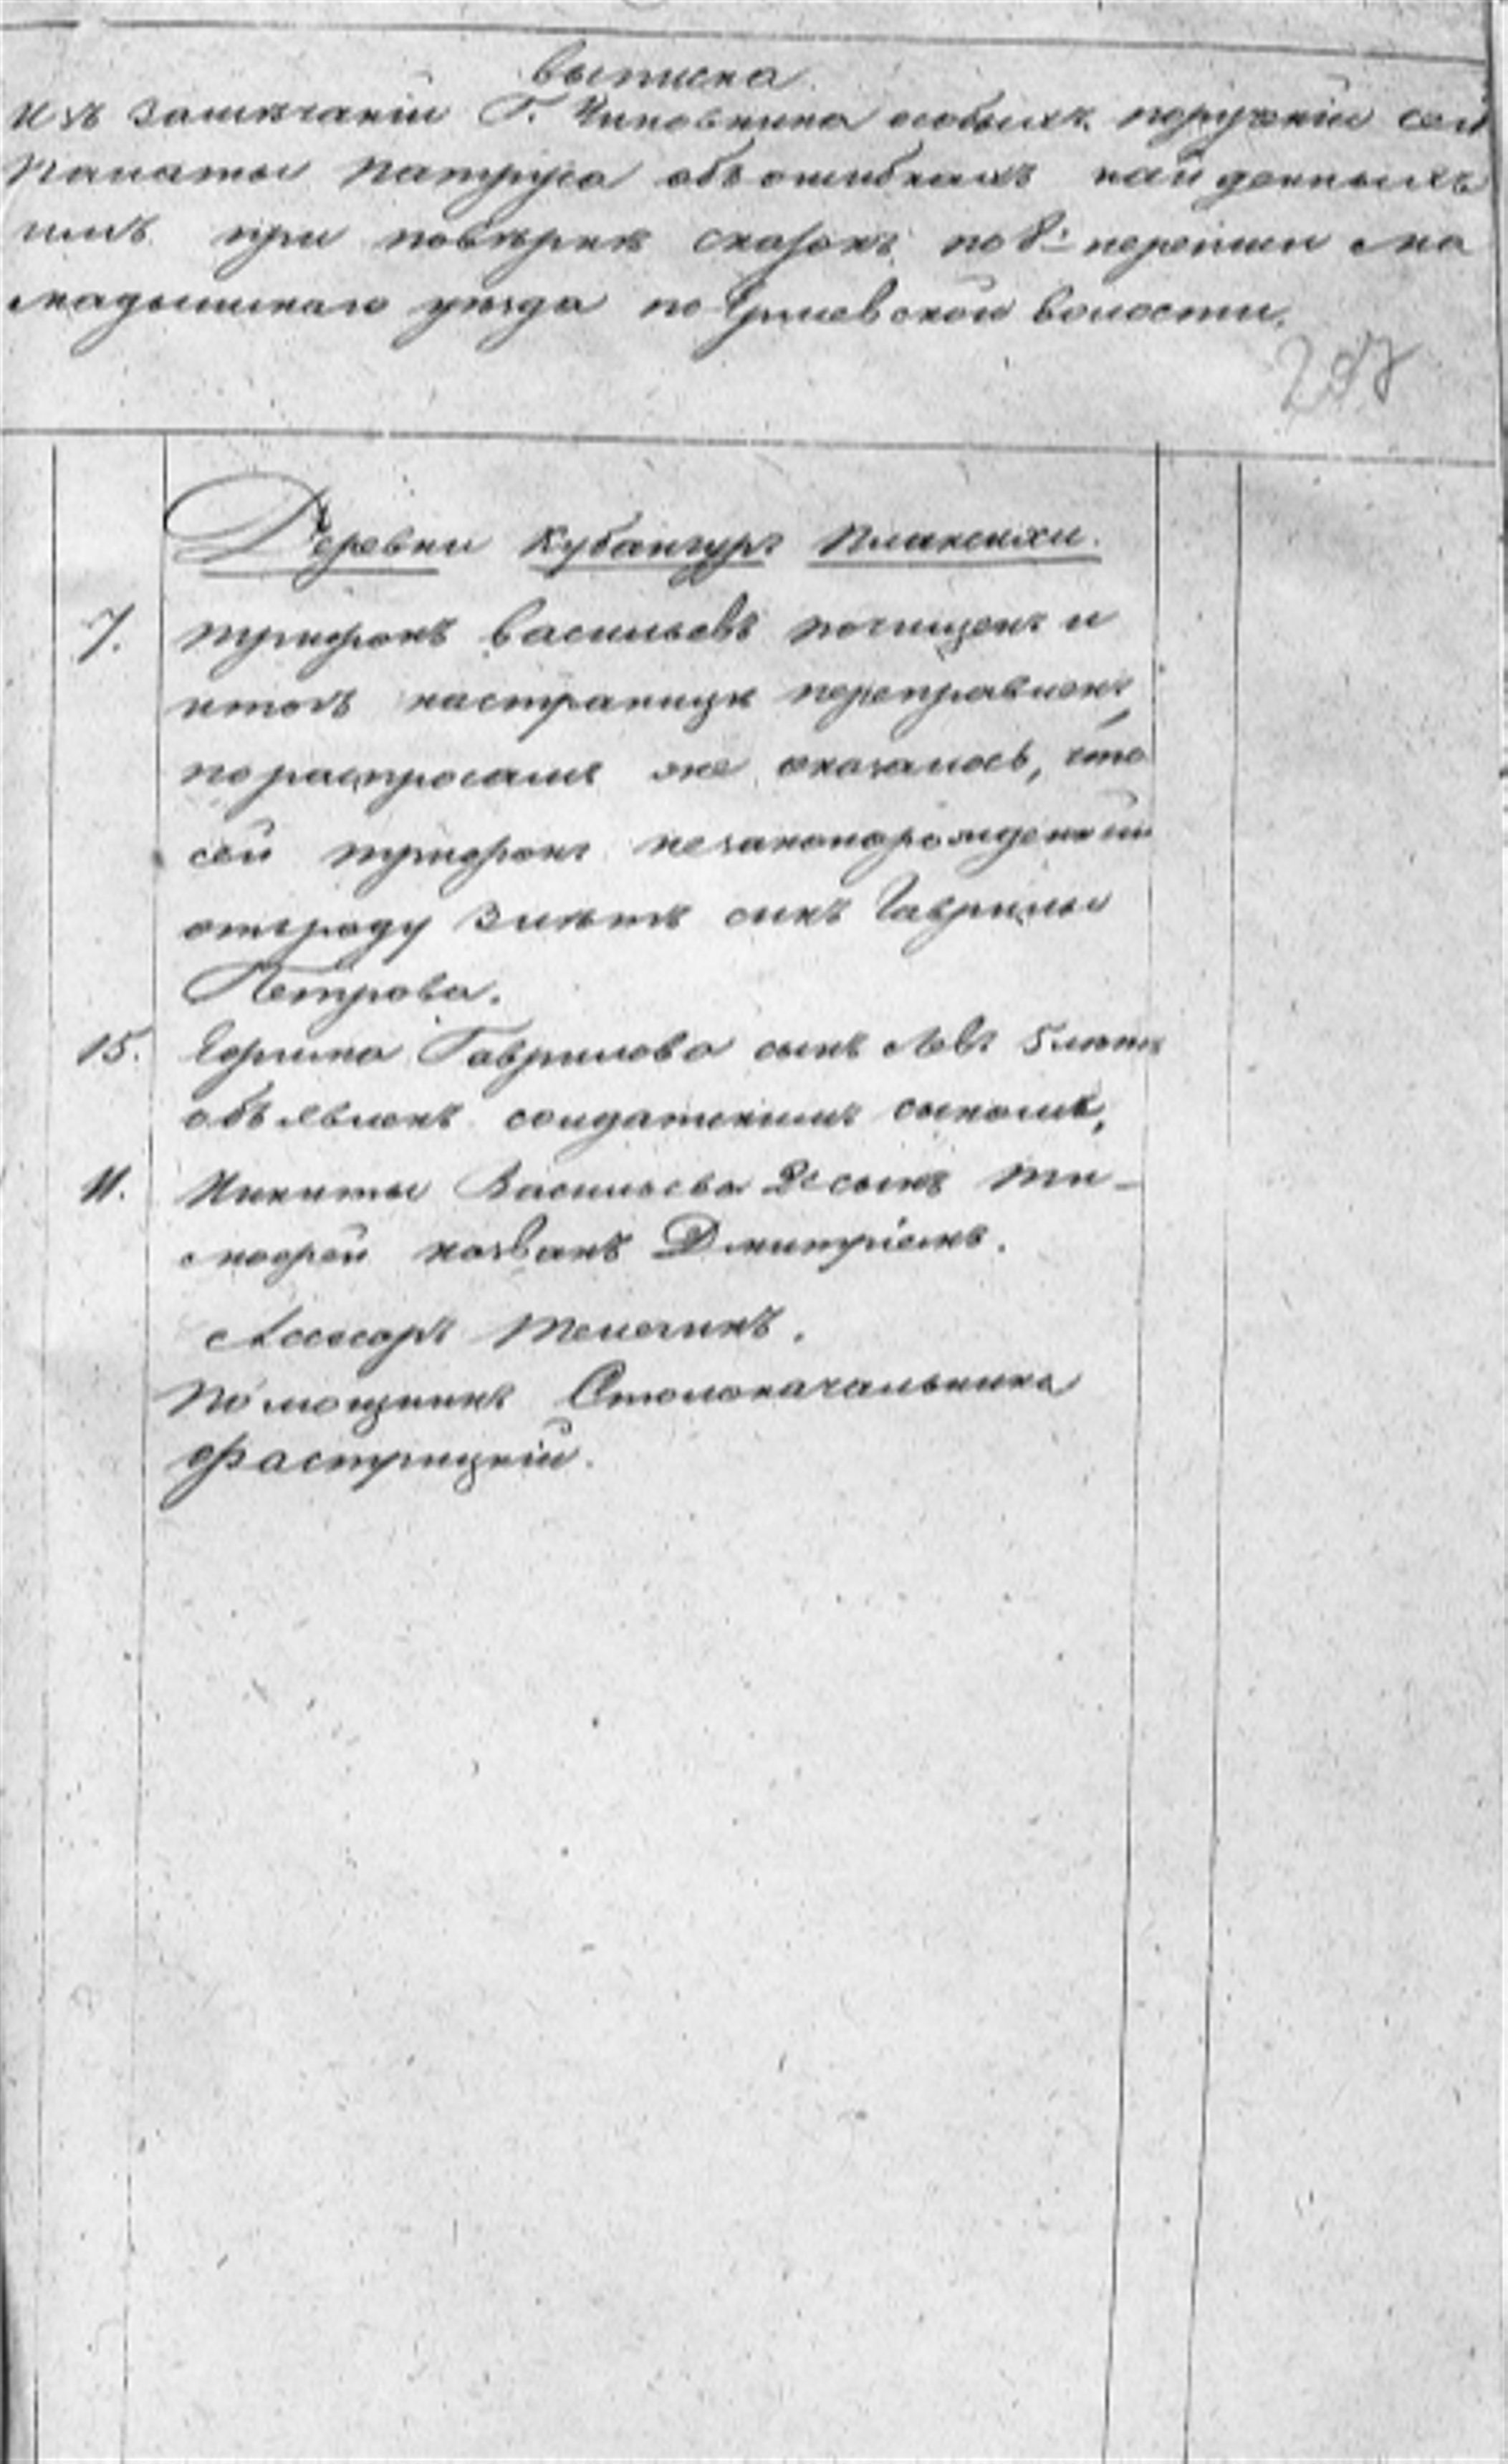 выписка
Изъ замѣчаніи Г. Чиновника особыхъ порученіи сей
Палаты Патруса объ ошибкахъ найденныхъ
имъ при повѣркѣ сказокъ по 8й переписи Ма
мадышскаго уѣзда по волости.
Деревни Кубангуръ Плаксихи.
7. Трифонъ Васильевъ почищенъ и
итогъ настраницѣ переправленъ,
пораспросамъ же оказалось, что
сей Трифонъ незаконорожденный
отъ роду 3 лѣтъ сынъ Гаврилы
Петрова.
15. Ефрима Гаврилова сынъ Левъ 5 лѣтъ
объявленъ солдатскимъ сыномъ,
11. Никиты Васильева 2й сынъ Ти-
мофей названъ Дмитріемъ.
Ассесоръ Телегинъ.
Помощникъ Столоначальника